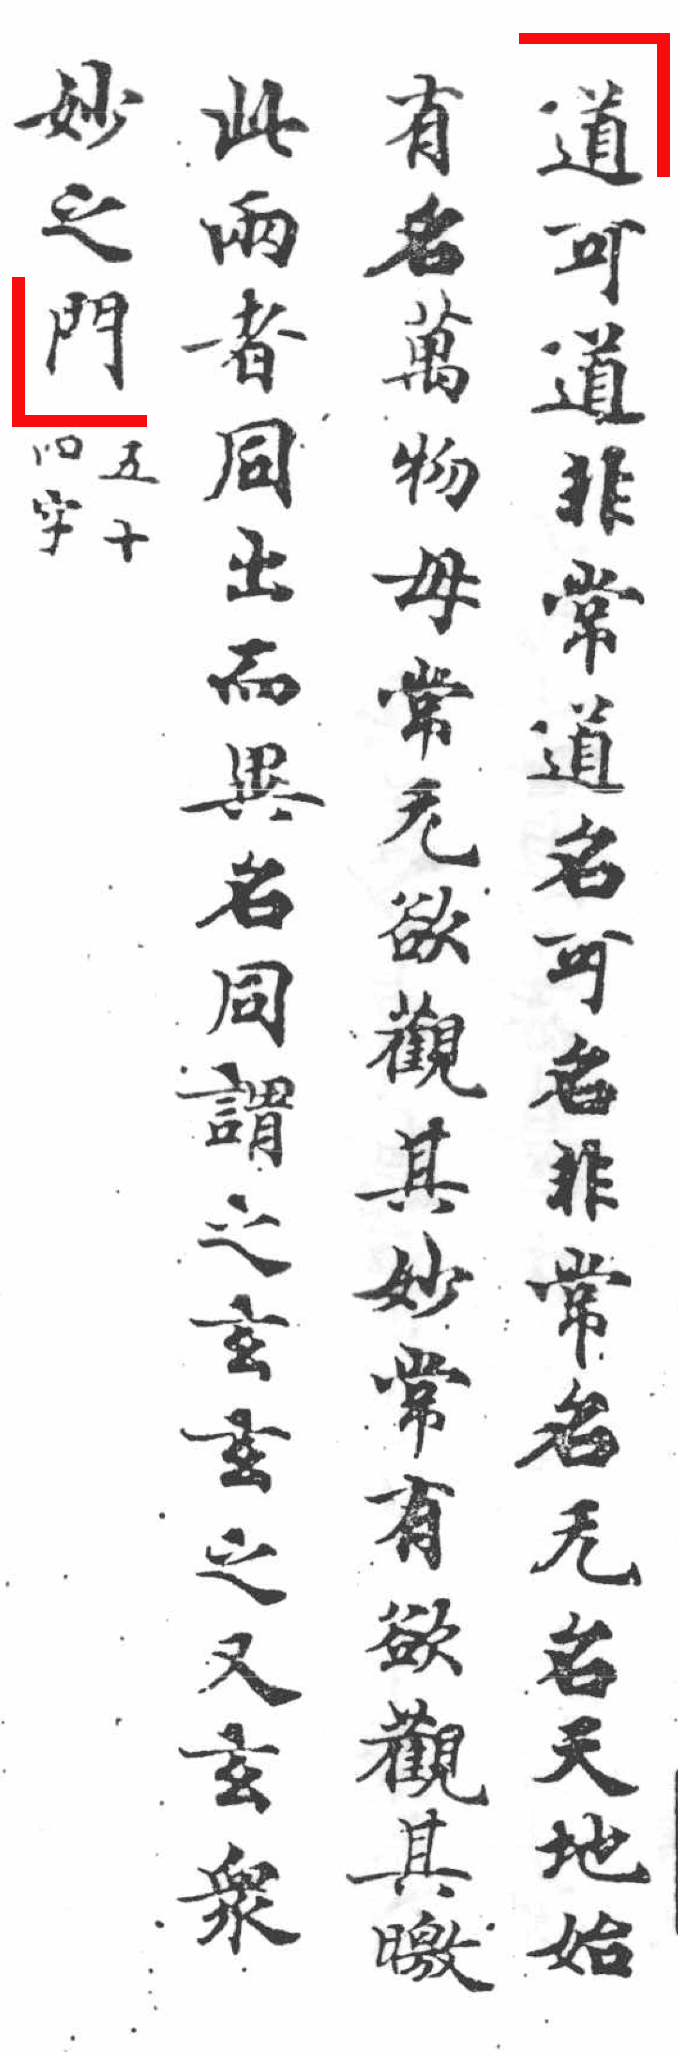 道可道非常道名可名非常名无名天地始
有名萬物母常无欲觀其妙常有欲觀其曒
此兩者同出而異名同謂之玄玄之又玄衆
妙之門
五十
四字